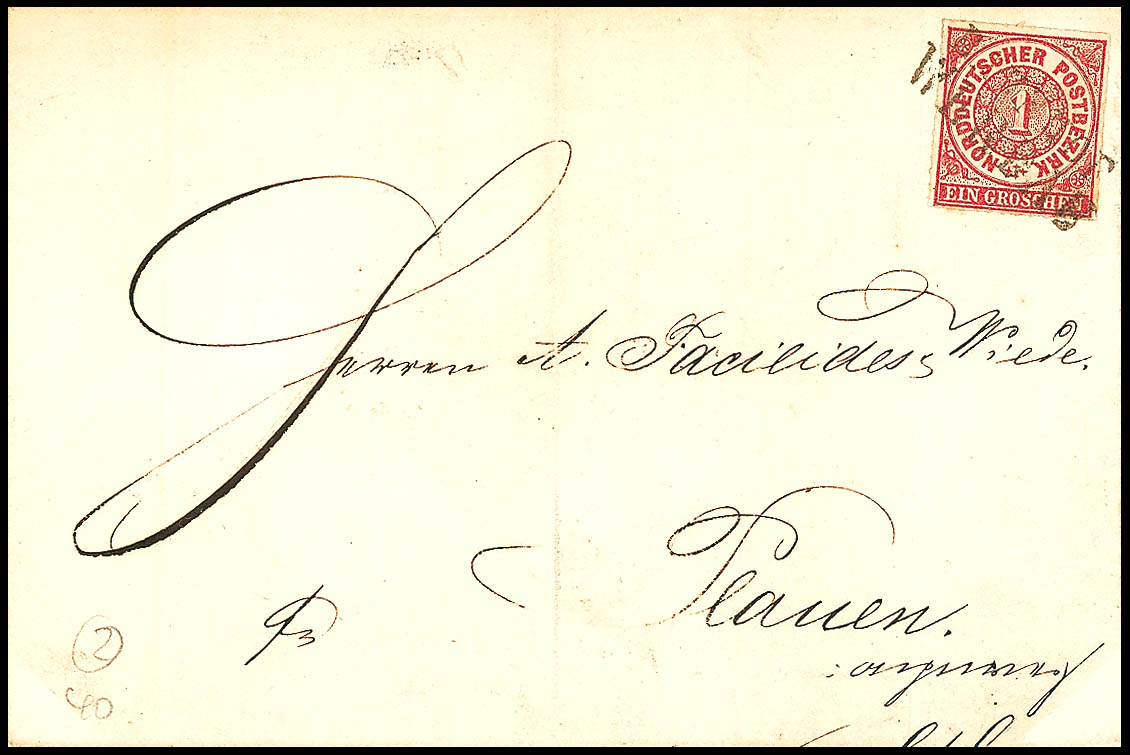 NORDDEUTSCHER POSTBEZIRK
1
EIN GROSCHEN
Herren A. Facilides & Wiede.
Plauen.
fr
2
40